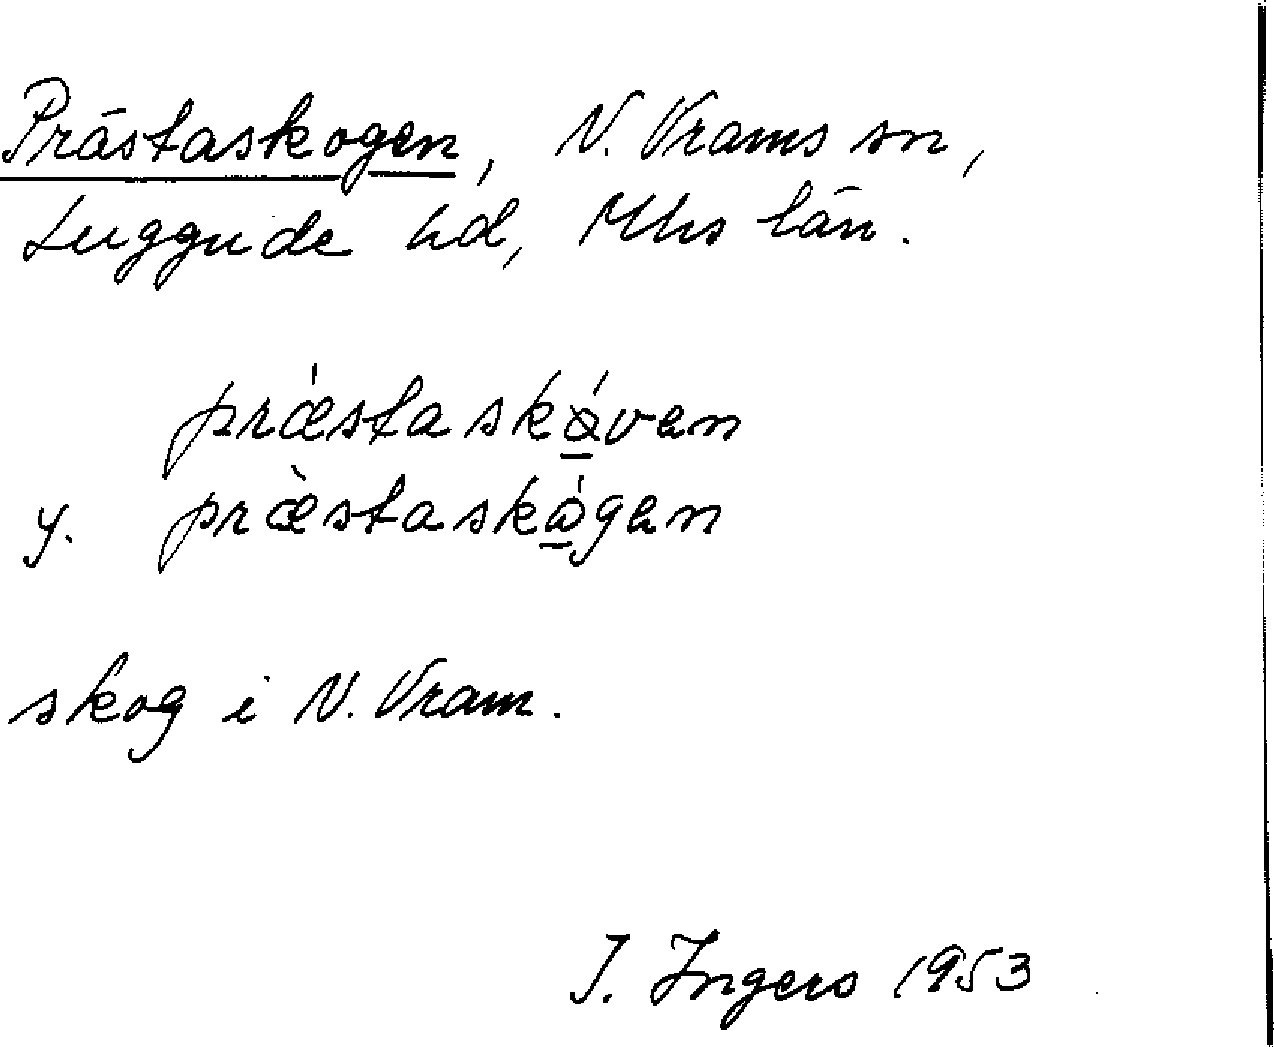 Prästaskogen, N. Vrams sn,
Luggude hd, Mhs län.
præ̍staskǻ̱ven
y. præ̀staskå̱̍gen
skog i N. Vram.
I. Ingers 1953